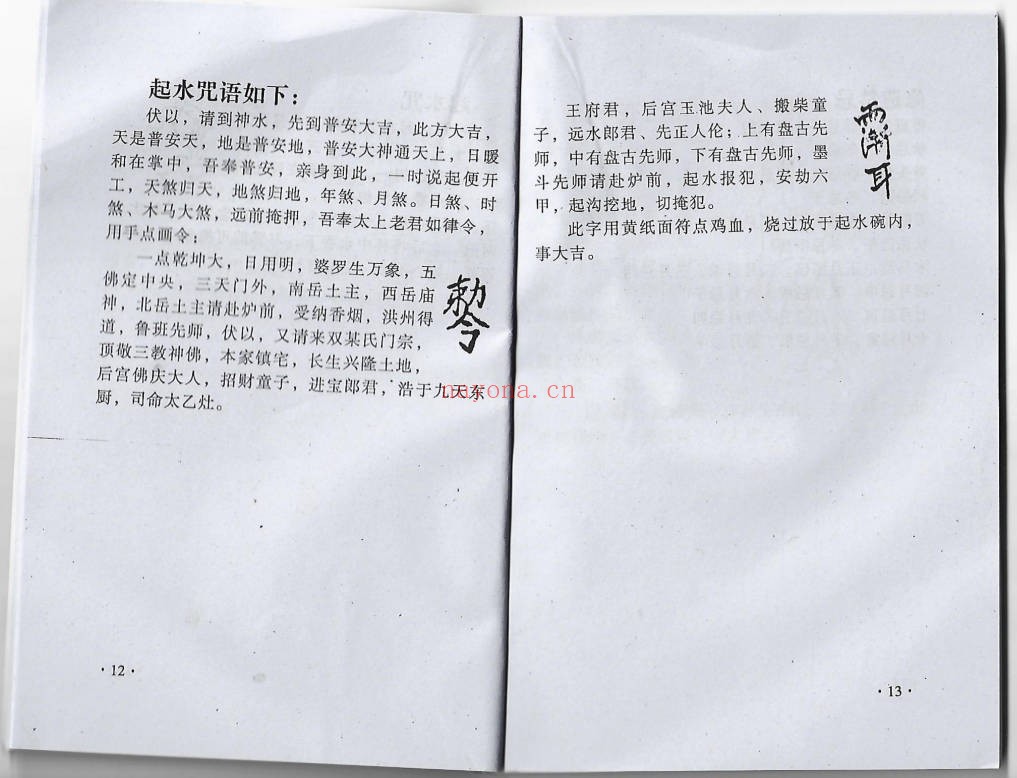 起水咒语如下：
伏以，请到神水，先到普安大吉，此方大吉，
天是普安天，地是普安地，普安大神通天上，日暖
和在掌中，吾奉普安，亲身到此，一时说起便开
工，天煞归天，地煞归地，年煞、月煞。日煞、时
煞、木马大煞，远前掩押，吾奉太上老君如律令，
用手点画令：
一点乾坤大，日用明，婆罗生万象，五
佛定中央，三天门外，南岳土主，西岳庙
神，北岳土主请赴炉前，受纳香烟，洪州得
道，鲁班先师，伏以，又请来双某氏门宗，
顶敬三教神佛，本家镇宅，长生兴隆土地，
后宫佛庆大人，招财童子，进宝郎君，浩于九天东
厨，司命太乙灶。
敕令
nayona.cn
·12·
王府君，后宫玉池夫人、搬柴童
子，远水郎君、先正人伦；上有盘古先
师，中有盘古先师，下有盘古先师，墨
斗先师请赴炉前，起水报犯，安劫六
甲，起沟挖地，切掩犯。
此字用黄纸面符点鸡血，烧过放于起水碗内，
事大吉。
耳
·13·